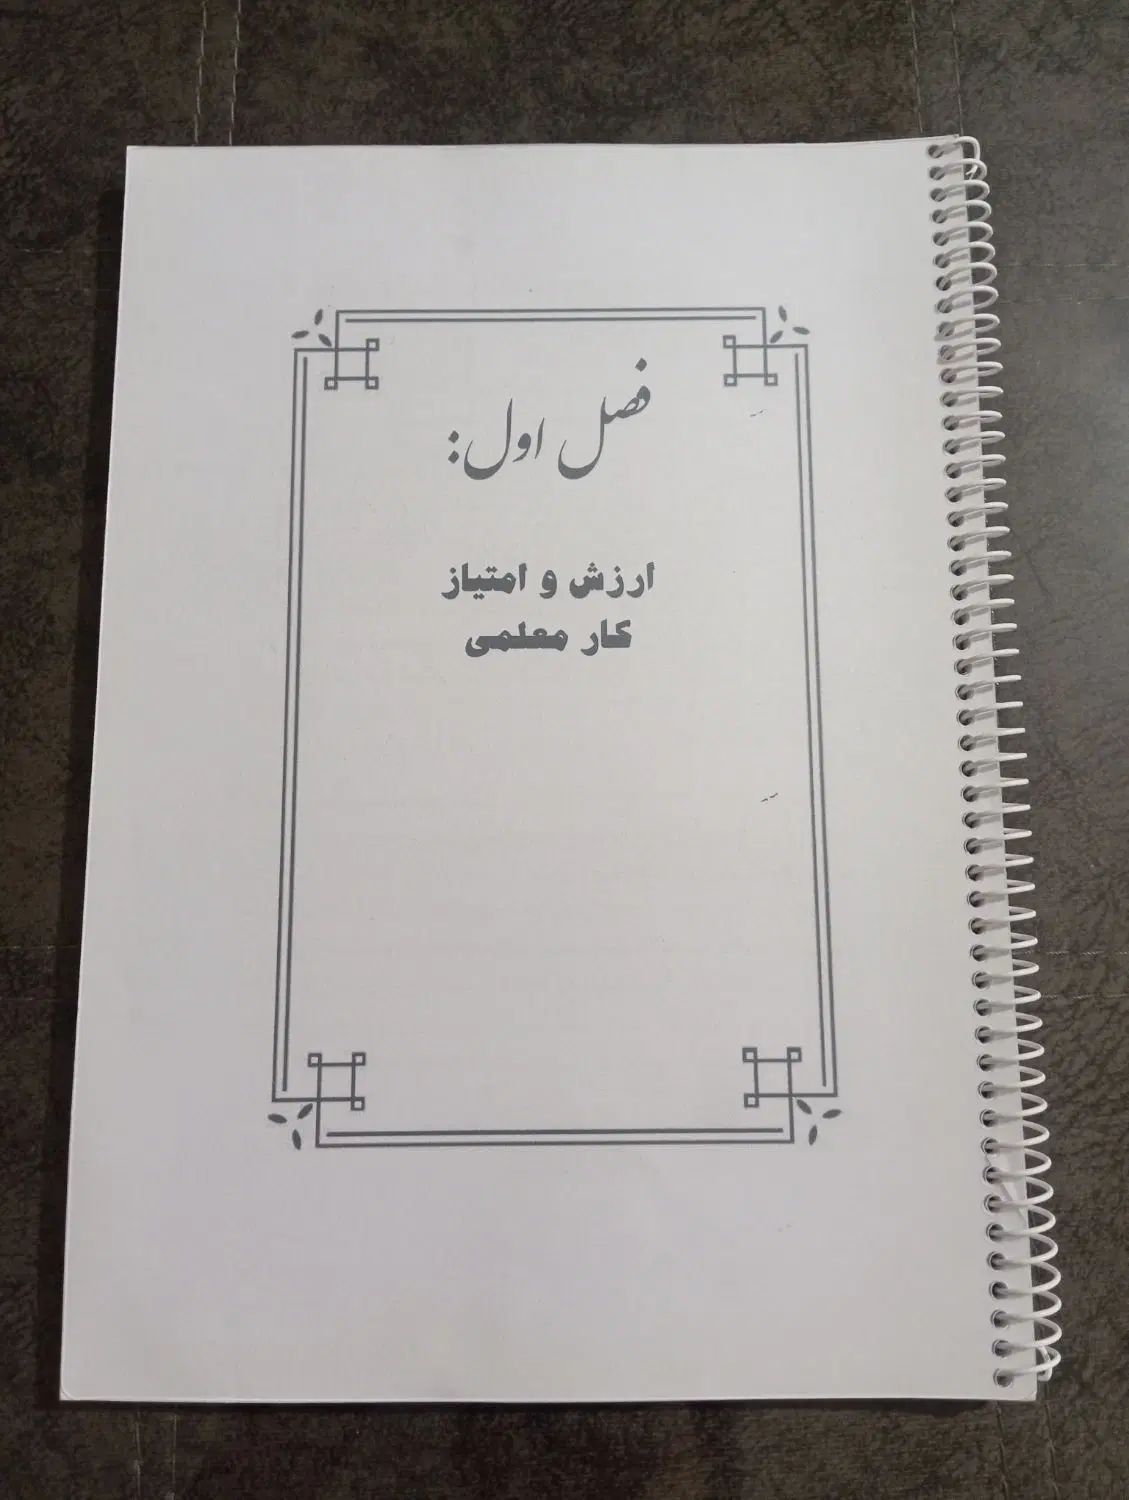 فصل اول:
ارزش و امتیاز
کار معلمی